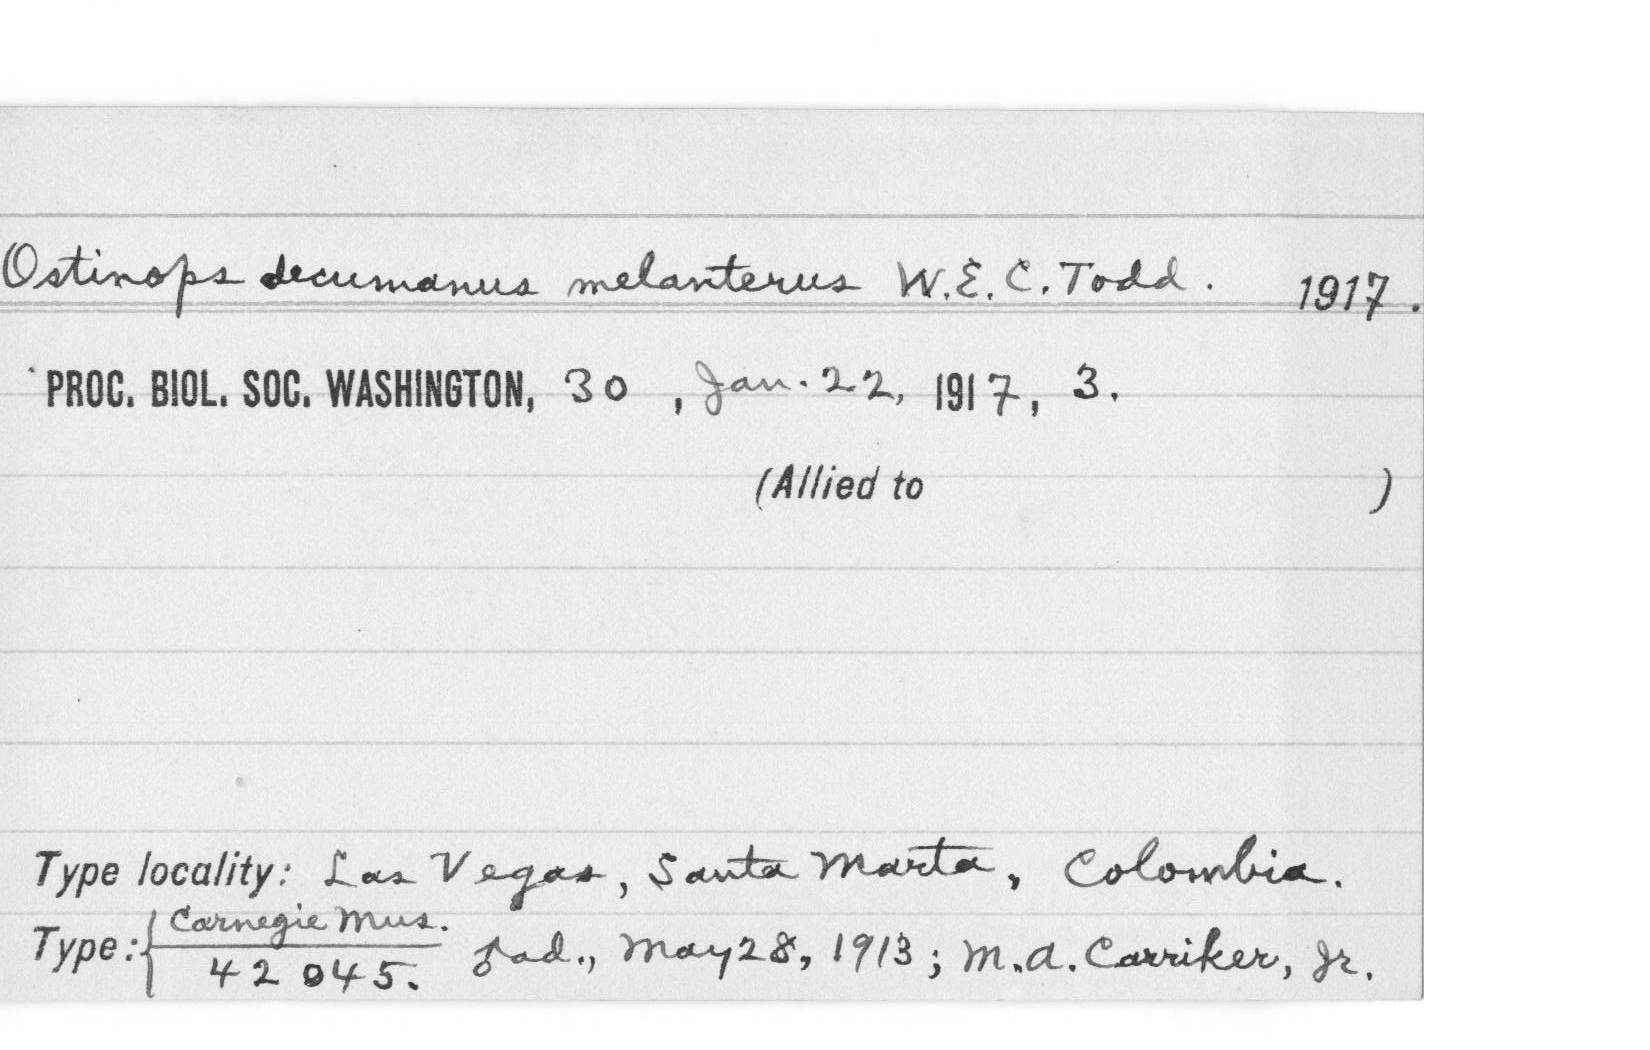 Ostinops decumanus melanterus W.E.C. Todd. 1917.
PROC. BIOL. SOC. WASHINGTON, 30, Jan. 22, 1917, 3.
(Allied to )
Type locality: Las Vegas, Santa Marta, Colombia.
Type: { Carnegie Mus.
42045. ♂ad., May 28, 1913; M.A. Carriker, Jr.